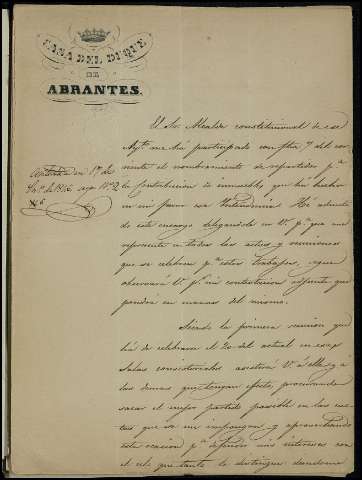 CASA DEL DUQUE
DE
ABRANTES.
El Sr. Alcalde constitucional de ese
Aytº me há participado con fha 7 del cor-
riente el nombramiento de repartidor pª
la Contribucion de inmuebles, que há hecho
en mi favor esa Yntendencia. Hé admitido
este encargo delegandole en V. pª que me
represente en todos los actos y reuniones
que se celebren pª estos trabajos, segun
observará V. pr mi contestacion adjunta que
pondrá en manos del mismo.
Siendo la primera reunion que
há de celebrarse el 20 del actual en esas
Salas consistoriales asistirá V. á ella y á
las demas que tengan efecto, procurando
sacar el mejor partido posible en las cuo-
tas que se me impongan y aprovechando
esta ocasion pª defender mis intereses con
el celo que tanto le distingue dandome
Contestada en 1º de